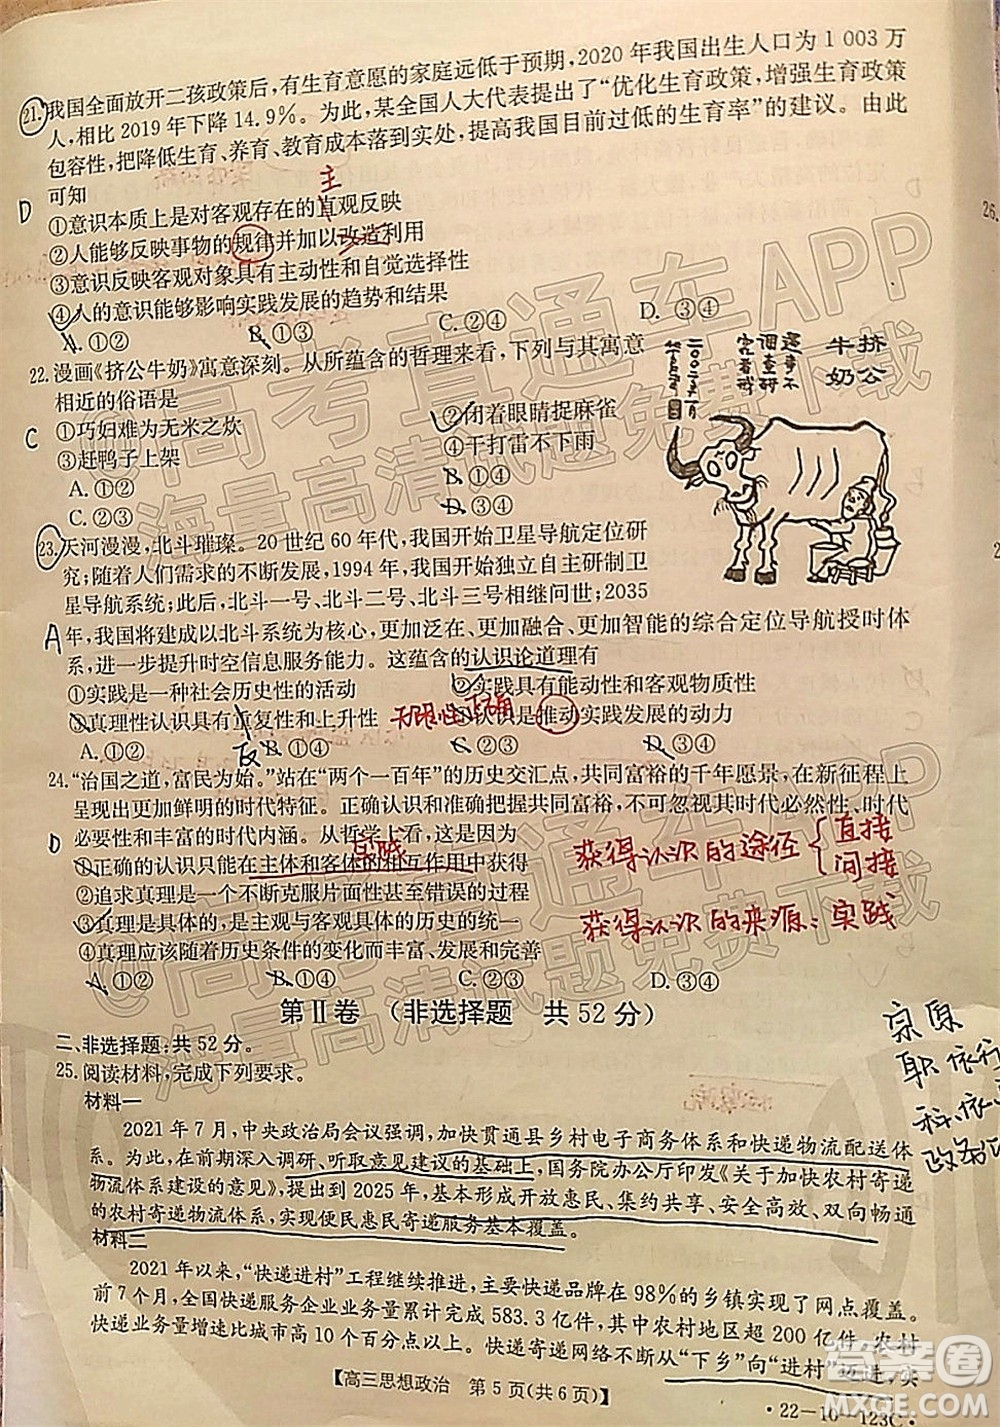 21.我国全面放开二孩政策后,有生育意愿的家庭远低于预期,2020年我国出生人口为1 003万
人,相比2019年下降14.9%。为此,某全国人大代表提出了“优化生育政策,增强生育政策
包容性,把降低生育、养育、教育成本落到实处,提高我国目前过低的生育率”的建议。由此
可知
主
D
①意识本质上是对客观存在的直观反映
②人能够反映事物的规律并加以改造利用
③意识反映客观对象具有主动性和自觉选择性
④人的意识能够影响实践发展的趋势和结果
A.①② B.①③ C.②④ D.③④
22.漫画《挤公牛奶》寓意深刻。从所蕴含的哲理来看,下列与其寓意
相近的俗语是
C
①巧妇难为无米之炊 ②闭着眼睛捉麻雀
③赶鸭子上架 ④干打雷不下雨
A.①② B.①④
C.②③ D.③④
挤公
牛奶
23.天河漫漫,北斗璀璨。20世纪60年代,我国开始卫星导航定位研
究;随着人们需求的不断发展,1994年,我国开始独立自主研制卫
星导航系统;此后,北斗一号、北斗二号、北斗三号相继问世;2035
A
年,我国将建成以北斗系统为核心,更加泛在、更加融合、更加智能的综合定位导航授时体
系,进一步提升时空信息服务能力。这蕴含的认识论道理有
①实践是一种社会历史性的活动 ②实践具有能动性和客观物质性
③真理性认识具有重复性和上升性 无限性 ④认识是推动实践发展的动力
反
A.①② B.①④ C.②③ D.③④
24.“治国之道,富民为始。”站在“两个一百年”的历史交汇点,共同富裕的千年愿景,在新征程上
呈现出更加鲜明的时代特征。正确认识和把握共同富裕,不可忽视其时代必然性、时代
必要性和丰富的时代内涵。从哲学上看,这是因为
D
实践
①正确的认识只能在主体和客体的相互作用中获得
②追求真理是一个不断克服片面性甚至错误的过程
③真理是具体的,是主观与客观具体的历史的统一
④真理应该随着历史条件的变化而丰富、发展和完善
A.①② B.①③ C.②③ D.③④
获得认识的途径 直接
间接
获得认识的来源:实践
第Ⅱ卷 (非选择题 共52分)
二、非选择题:共52分。
25.阅读材料,完成下列要求。
材料一
2021年7月,中央政治局会议强调,加快贯通县乡村电子商务体系和快递物流配送体
系。为此,在前期深入调研、听取意见建议的基础上,国务院办公厅印发《关于加快农村寄递
物流体系建设的意见》,提出到2025年,基本形成开放惠民、集约共享、安全高效、双向畅通
的农村寄递物流体系,实现便民惠民寄递服务基本覆盖。
材料二
2021年以来,“快递进村”工程继续推进,主要快递品牌在98%的乡镇实现了网点覆盖。
前7个月,全国快递服务企业业务量累计完成583.3亿件,其中农村地区超200亿件,农村
快递业务量增速比城市高10个百分点以上。快递寄递网络不断从“下乡”向“进村”延进,实
【高三思想政治 第5页(共6页)】
·22-10-123C·
宗原
职依行
26.
@高考直通车APP
海量高清试题免费下载
@高考直通车APP
海量高清试题免费下载
答案圈